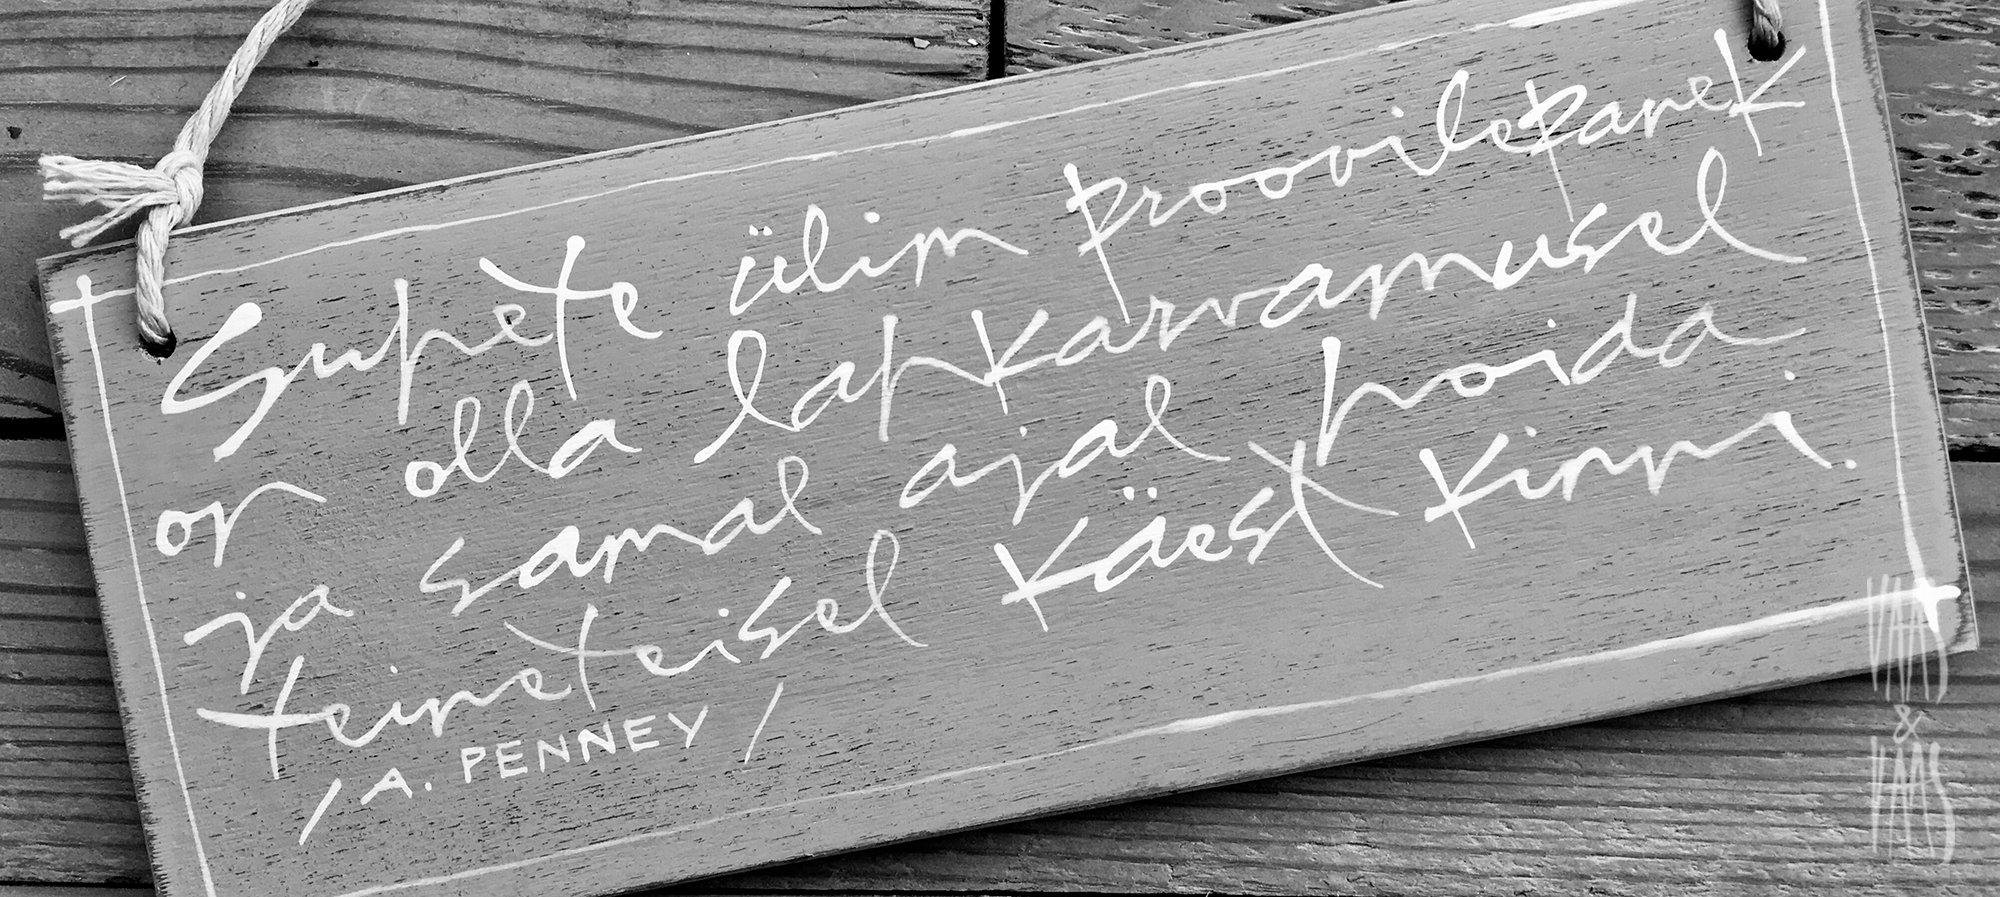 Suhete ülim proovilepanek
on olla lahkarvamusel
ja samal ajal hoida
teineteisel käest kinni.
/A. PENNEY/
VAAS
&
VAAS